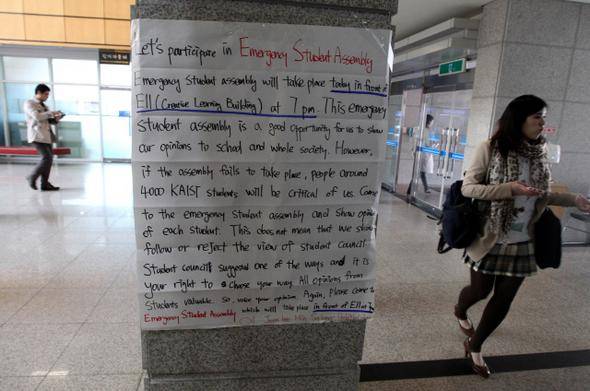 Let's participate in Emergency Student Assembly
Emergency Student assembly will take place today in front of
E11 (Creative Learning Building) at 7 pm. This emergency
Student assembly is a good opportunity for us to show
our opinions to school and whole society. However,
if the assembly fails to take place, people around
4000 KAIST students will be critical of us. Come
to the emergency student assembly and show opinion
of each student. This does not mean that we should
follow or reject the view of student council
Student council suggest one of the ways and it is
your right to choose your way. All opinions from
Students valuable. So, voice your opinion. Again, please come to
Emergency Student Assembly which will take place in front of E11 at 7